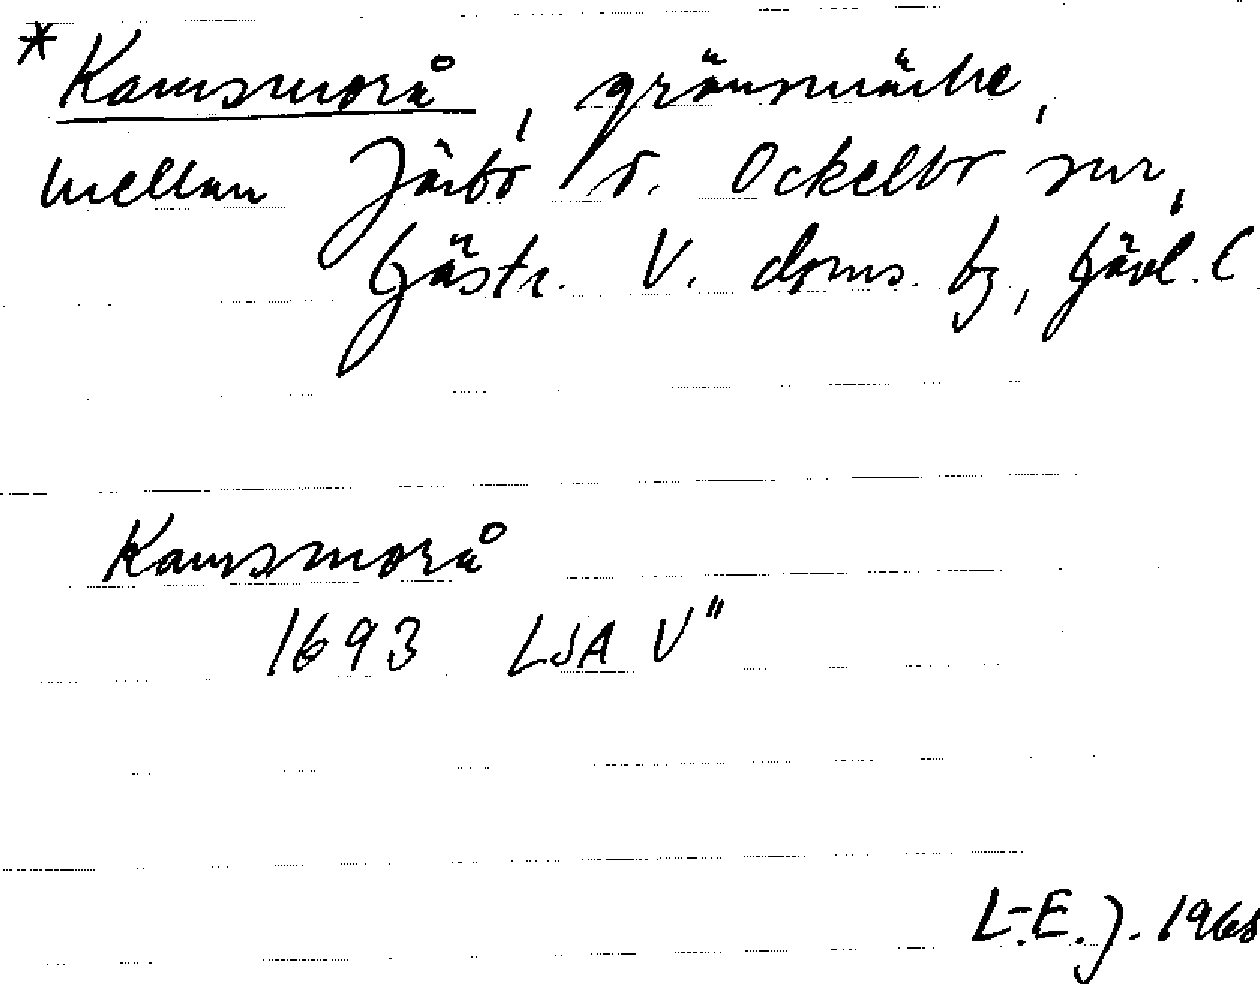 * Kamsmorå, gränsmärke,
mellan Järbo o. Ockelbo snr,
Gästr. V. doms. bg, Gävl. l
Kamsmorå
1693 LSA V"
L-E. J. 1968